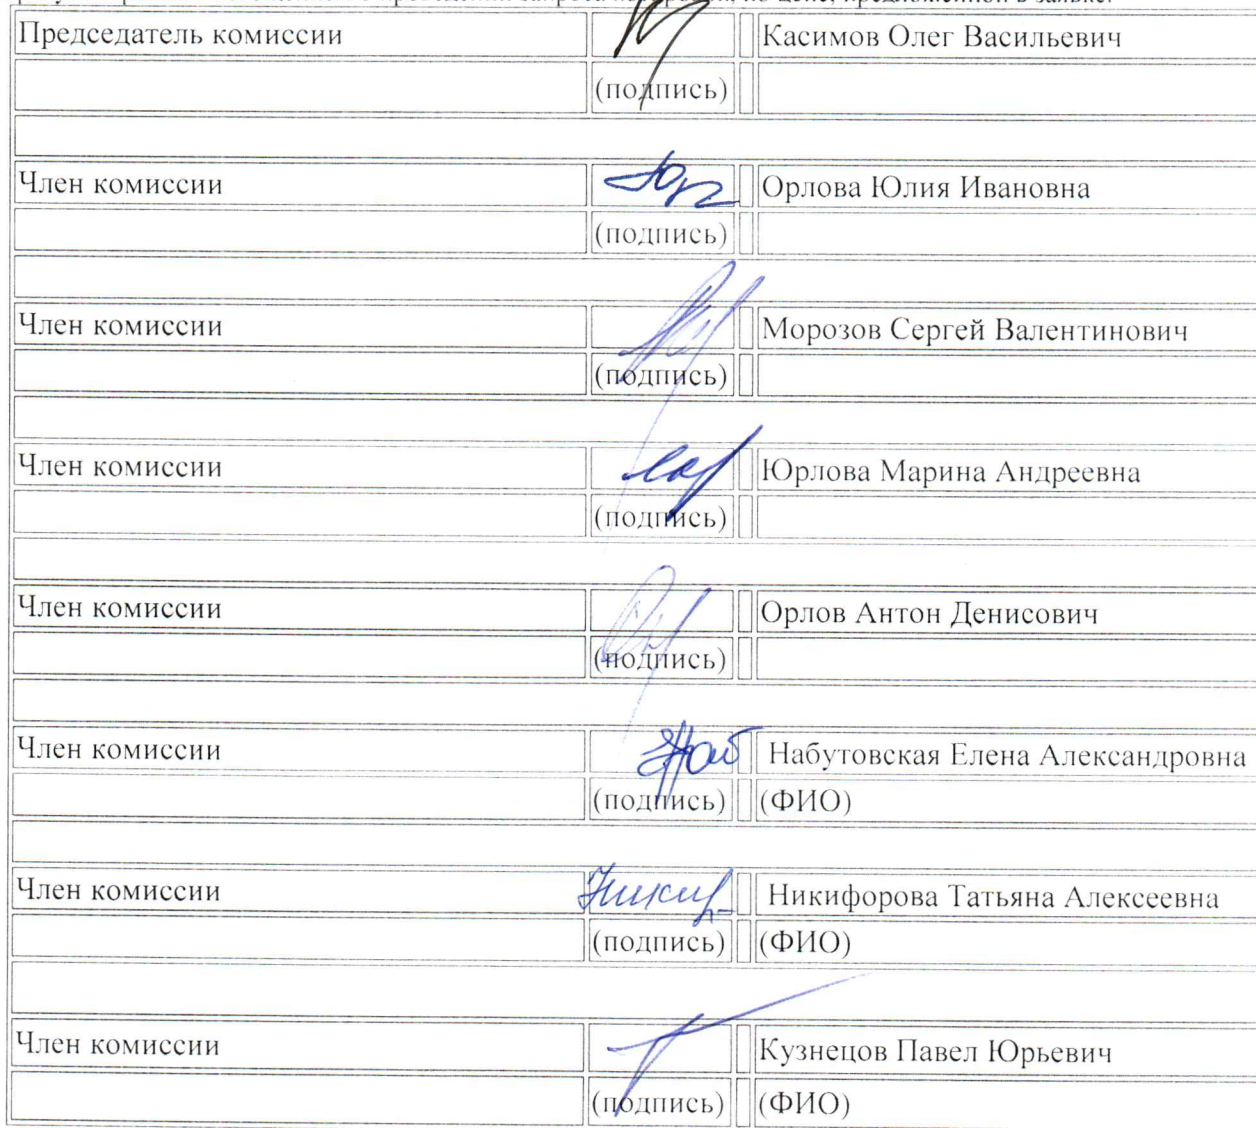 по цене, предложенной в заявке.
Председатель комиссии Касимов Олег Васильевич
(подпись)
Член комиссии Орлова Юлия Ивановна
(подпись)
Член комиссии Морозов Сергей Валентинович
(подпись)
Член комиссии Юрлова Марина Андреевна
(подпись)
Член комиссии Орлов Антон Денисович
(подпись)
Член комиссии Набутовская Елена Александровна
(подпись) (ФИО)
Член комиссии Никифорова Татьяна Алексеевна
(подпись) (ФИО)
Член комиссии Кузнецов Павел Юрьевич
(подпись) (ФИО)